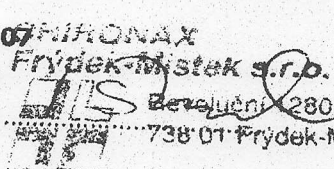 07
CHIRONAX
Frýdek-Místek s.r.o.
Revoluční 1280
738 01 Frýdek-M